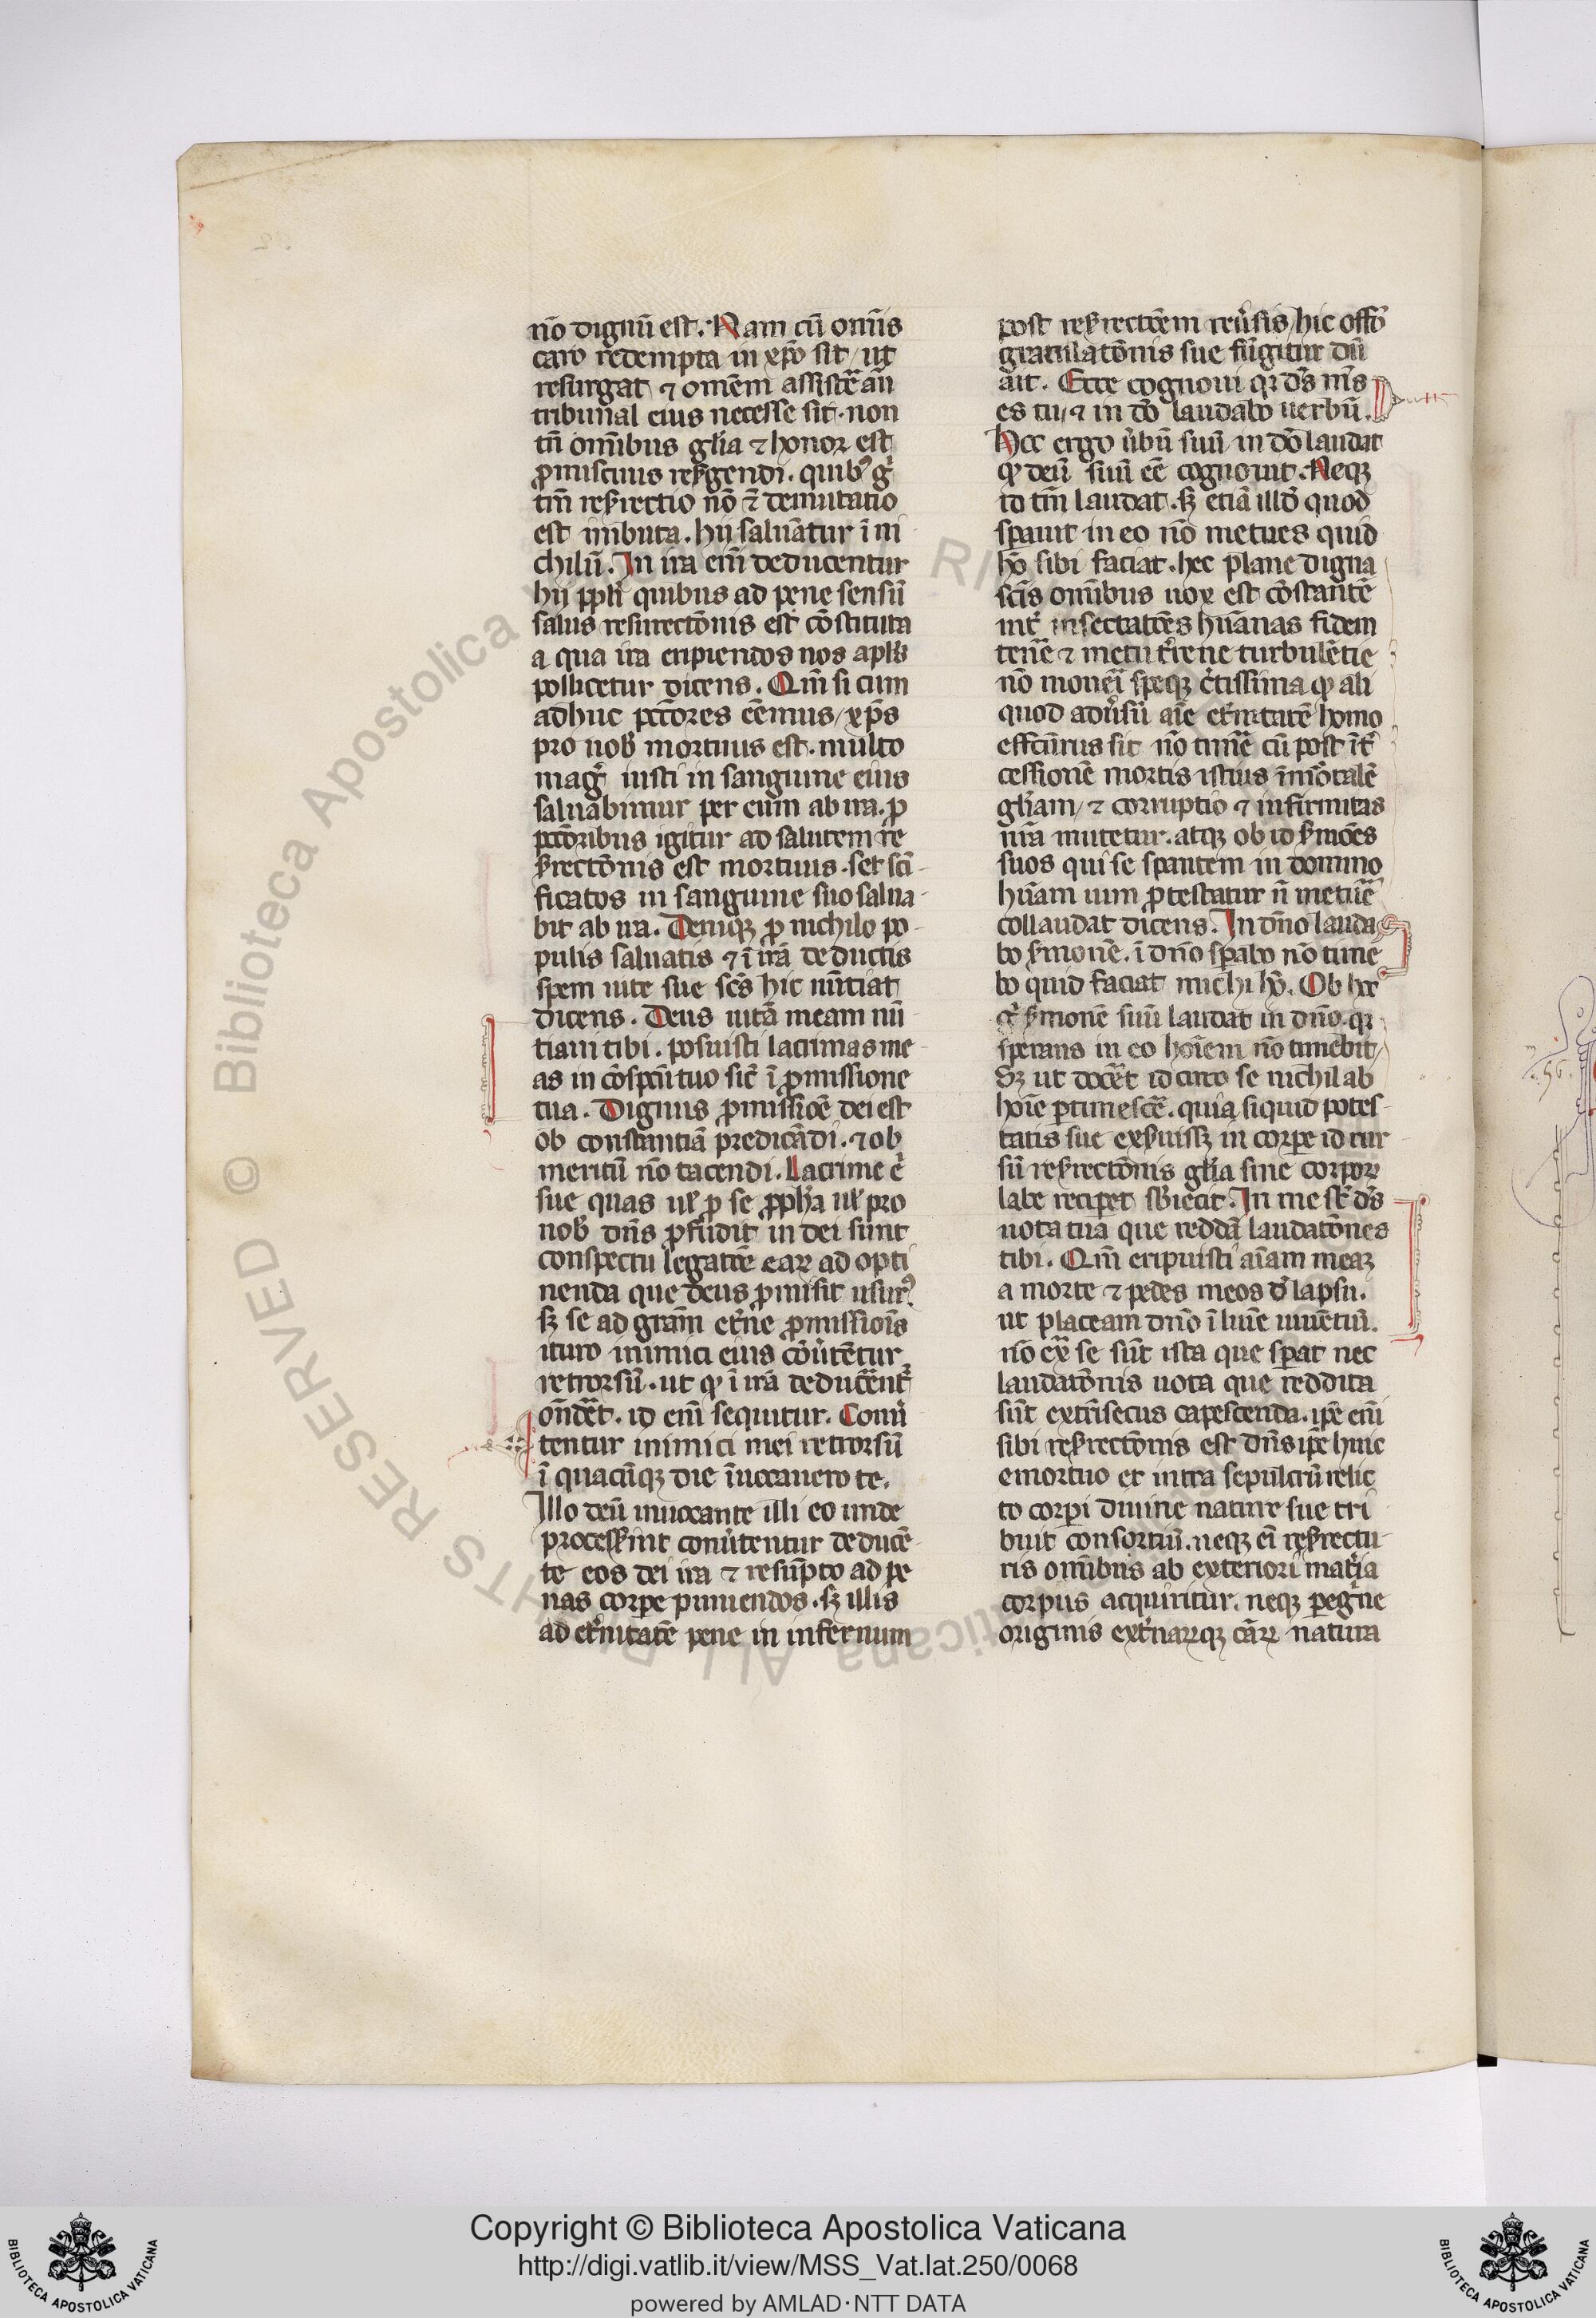 nō dignū est. Nam cū omīs
caro redempta in xp̄o sit / ut
resurgat ⁊ omēm assistē an̄
tribunal eius necesse sit . non
tn̄ om̄ibus gl̄ia ⁊ honor est
ꝓmiscuus resurgendi . quibꝰ gͥ
tm̄ resurrectio nō ⁊ demutatio
est inbuta . hij saluātur ī ni
chilū . In ira em̄ deducentur
hij ppl̄i quibus ad pene sensū
salus resurectōnis est cōstituta
a qua ira eripiendos nos apl̄s
pollicetur dicens . Qm̄ si cum
adhuc pctōres eēmus / xp̄s
pro nob̄ mortuus est . multo
magͥ iusti in sanguine eius
saluabimur per eum ab ira . ꝓ
pctōribus igitur ad salutem re
surrectōnis est mortuus . set scī
ficatos in sanguine suo salua
bit ab ira . Deniqꝫ ꝓ nichilo po
pulis saluatis ⁊ ī irā deductis
spem uite sue scs̄ hic nūtiat
dicens . Deus uitā meam nū
tiaui tibi . posuisti lacrimas me
as in cōspcū tuo sic̄ ī ꝓmissione
tua . Dignus ꝓmissiōe dei est
ob constantiā predicādi . ⁊ ob
meritū nō tacendi . Lacrime
sue quas ul̄ ꝓ se ꝓph̄a ul̄ pro
nob̄ dn̄s ꝓfudit in dei sunt
conspectu legatōe eaꝝ ad opti
nenda que deus ꝓmisit usurꝰ
sꝫ se ad gram̄ et̄ne ꝓmissiois̄
ituro inimici eius cōūtētur
retrorsū . ut qꝫ ī irā deducēnt̄
ōndēt . id em̄ sequitur . Conū
tentur inimici mei retrorsū
ī quacūqꝫ die īuocauero te .
Illo deū inuocante illi eo unde
processerint conūtentur deducē
te eos dei ira ⁊ resūpto ad pe
nas corpe puniendos . sꝫ illis
ad et̄nitatē pene in infernum
post resurrectōem reūsis / hic offō
gratulatōnis sue fūgitur dū
ait . Ecce cognoui qꝛ ds̄ ms̄
es tu / ⁊ in dō laudabo uerbū .
Hec ergo ūbū suū in dō laudat
qꝫ deū suū eē cognouit . Neqꝫ
id tm̄ laudat . sꝫ etiā illō quod
sꝑauit in eo nō metues quid
hō sibi faciat . hec plane digna
scīs om̄ibus uox est cōstantē
int̄ insectatōes hūanas fidem
tenē ⁊ metu t̄rene turbulētie
nō moueī speqꝫ c̄tissima qꝫ ali
quod adūsū aīe et̄nitatē homo
effcūrus sit nō timē cū post īt̄
cessionē mortis istius īmōtalē
gl̄iam / ⁊ corruptio ⁊ infirmitas
nr̄a mutetur . atqꝫ ob id s̄mōes
suos qui se sꝑantem in domino
hūam uim ꝓtestatur n̄ metuē
collaudat dicens . In dn̄o lauda
bo s̄monē . ī dn̄o sꝑabo nō time
bo quid faciat michi hō . Ob hec
s̄monē suū laudat in dn̄o . qꝛ
sperans in eo hoīem nō timebit /
Sꝫ ut docēt idcirco se nichil ab
hoīe ꝑtimescē . quia siquid potes
tatis sue exeruissꝫ in corpe id rur
sū resurrectōnis gl̄ia sine corpoꝝ
labe reciꝑet sb̄iecit . In me st̄ ds̄
uota tua que reddā laudatōnes
tibi . Qm̄ eripuisti aīam meaꝫ
a morte ⁊ pedes meos d̄ lapsu .
ut placeam dn̄o ī lumē uiuētiū .
nō ex̄ se sūt ista que sꝑat nec
laudatōnis uota que reddita
sūt extrīsecus capescenda . ip̄e em̄
sibi resurrectōnis est dn̄s ip̄e huic
emortuo et intra sepulcrū relic
to corpi diuine nature sue tri
buit consortiū . neqꝫ eī resurrectu
ris om̄ibus ab exteriori mat̄ia
corpus acquiritur . neqꝫ peregͥne
originis ext̄narꝝqꝫ cāꝝ natura
Copyright © Biblioteca Apostolica Vaticana
http://digi.vatlib.it/view/MSS_Vat.lat.250/0068
powered by AMLAD·NTT DATA